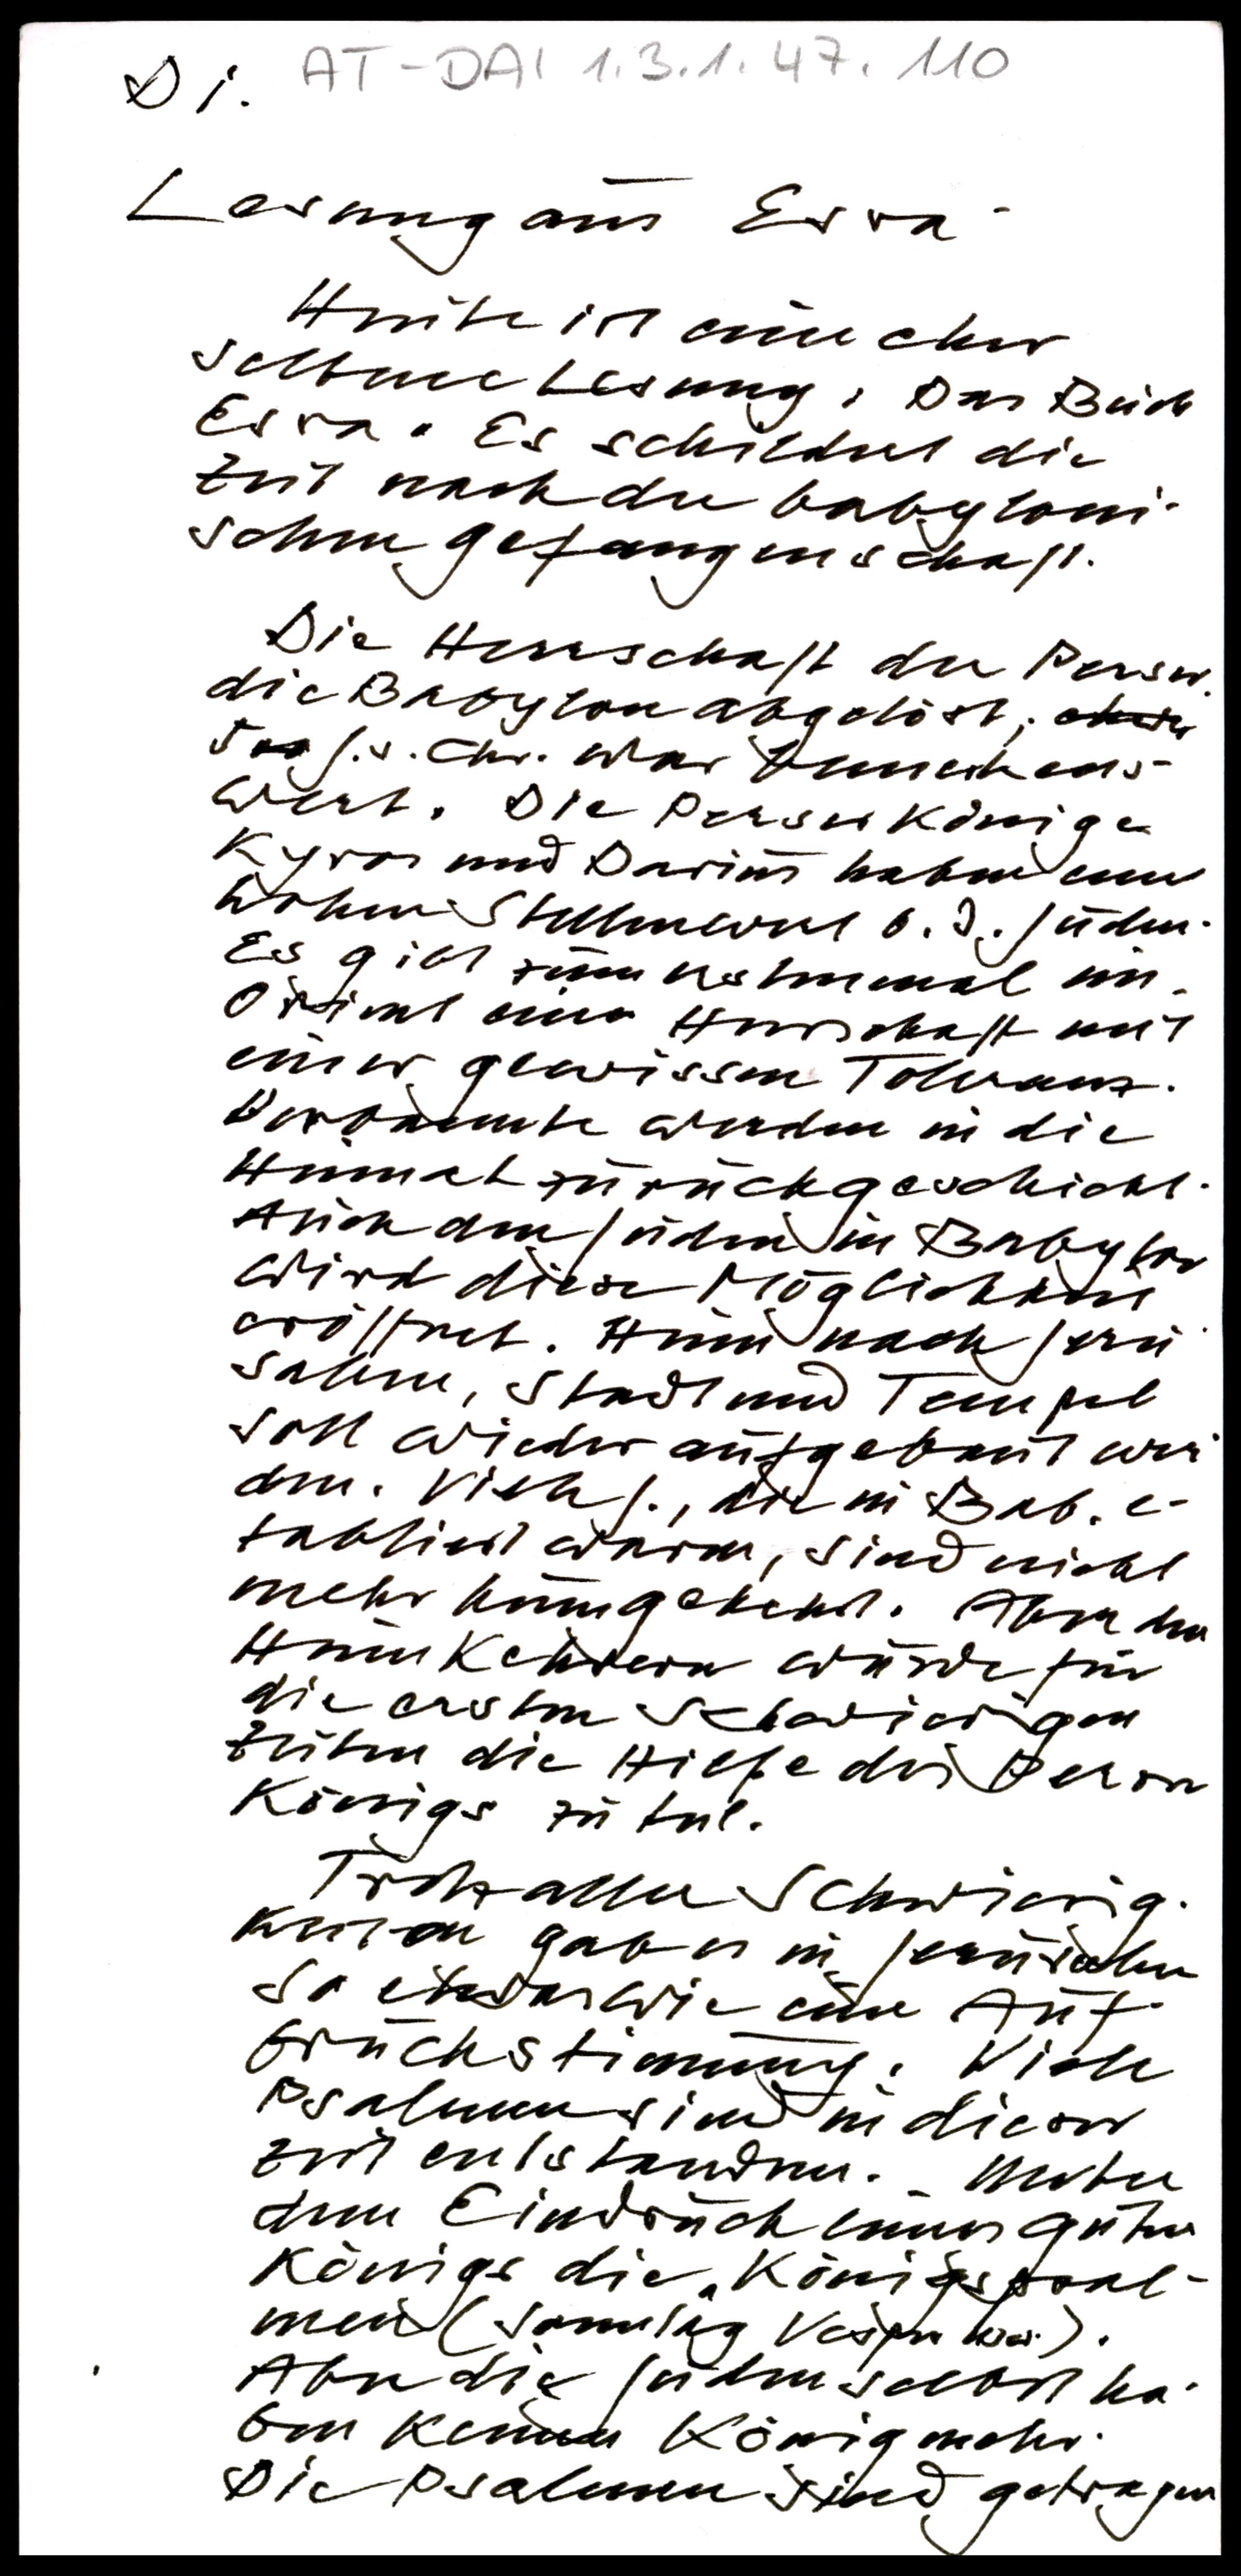 Di. AT-DAI 1.3.1.47.110
Lesung aus Esra
Heute ist eine eher
seltene Lesung. Das Buch
Esra. Es schildert die
Zeit nach der babyloni-
schen Gefangenschaft.
Die Herrschaft der Perser,
die Babylon abgelöst,
J. v. Chr. war bemerkens-
wert. Die Perserkönige
Kyros und Darius haben einen
hohen Stellenwert b. d. Juden.
Es gibt zum erstenmal im
Orient eine Herrschaft mit
einer gewissen Toleranz.
Verbannte werden in die
Heimat zurückgeschickt.
Auch den Juden in Babylon
wird diese Möglichkeit
eröffnet. Heim nach Jeru
salem, Stadt und Tempel
soll wieder aufgebaut wer
den. Viele J., die in Bab. e-
tabliert waren, sind nicht
mehr heimgekehrt. Aber den
Heimkehrern wurde für
die ersten schwierigen
Zeiten die Hilfe des Perser
Königs zu teil.
Trotz aller Schwierig-
keiten gab es in Jerusalem
so etwas wie eine Auf-
bruchstimmung. Viele
Psalmen sind in dieser
Zeit entstanden. Unter
dem Eindruck eines guten
Königs die „Königspsal-
men (Sonntag Vesper).
Aber die Juden selbst ha-
ben keinen König mehr.
Die Psalmen sind getragen